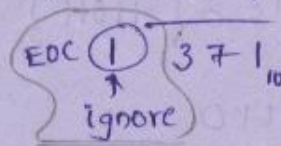 EOC 1 371₁₀
ignore